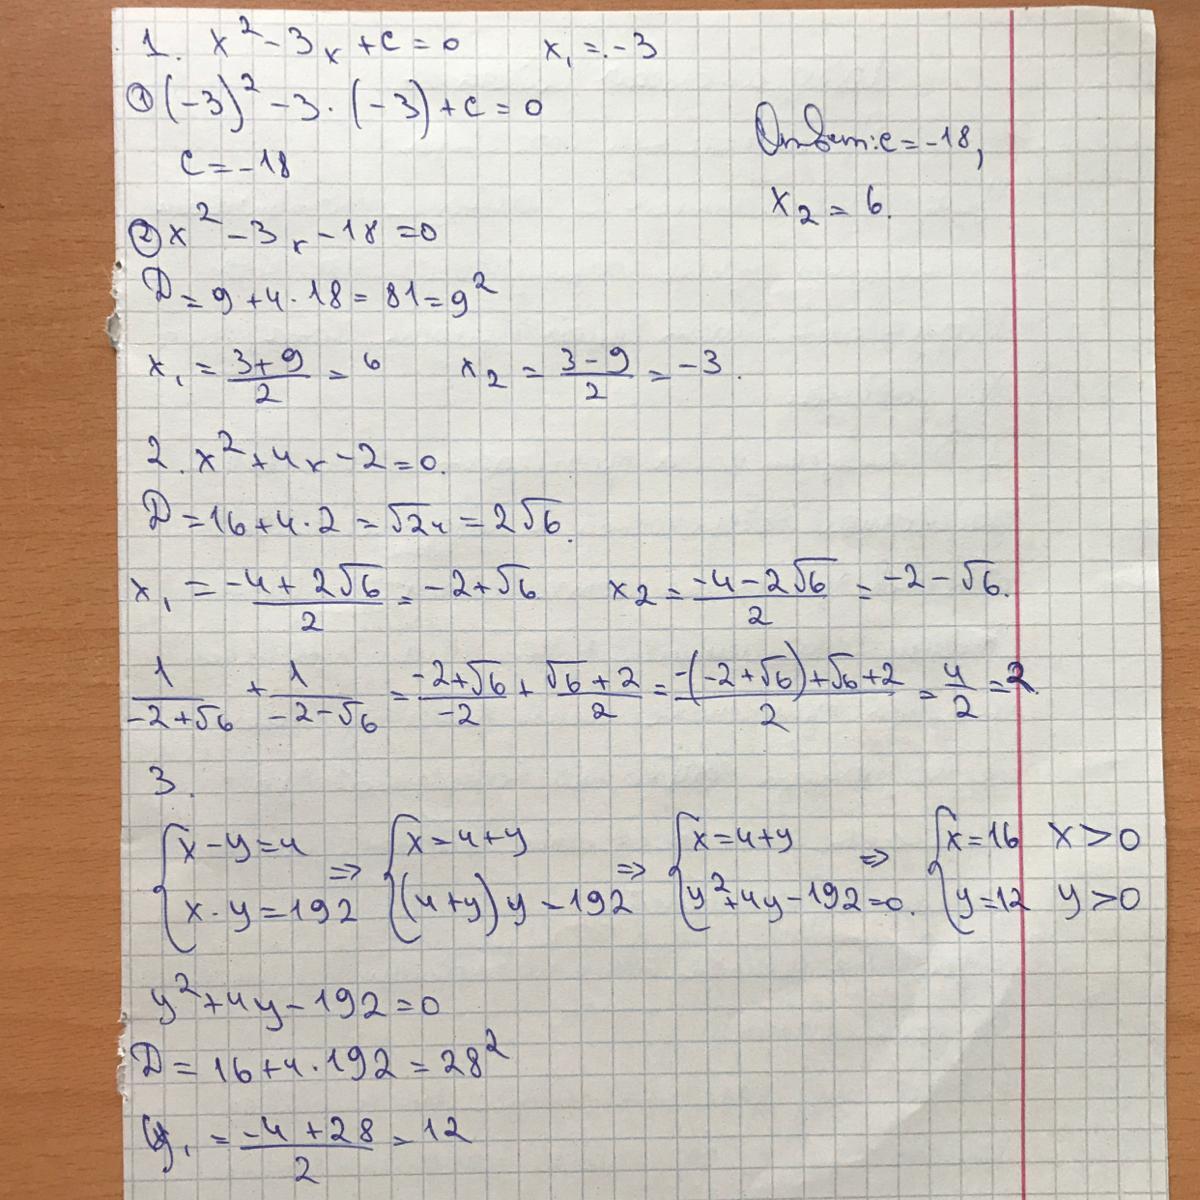 1. x² - 3x + c = 0    x₁ = -3
① (-3)² - 3 · (-3) + c = 0
c = -18
Ответ: c = -18,
x₂ = 6.
② x² - 3x - 18 = 0
D = 9 + 4 · 18 = 81 = 9²
x₁ = (3+9)/2 = 6    x₂ = (3-9)/2 = -3.
2. x² + 4x - 2 = 0.
D = 16 + 4 · 2 = √24 = 2√6.
x₁ = (-4 + 2√6)/2 = -2 + √6    x₂ = (-4 - 2√6)/2 = -2 - √6.
1/(-2+√6) + 1/(-2-√6) = (-2+√6)/(-2) + (√6+2)/2 = (-(-2+√6)+√6+2)/2 = 4/2 = 2.
3.
{x - y = 4 ⇒ {x = 4 + y ⇒ {x = 4 + y ⇒ {x = 16    x > 0
{x · y = 192    {(4+y) y - 192    {y² + 4y - 192 = 0.    {y = 12    y > 0
y² + 4y - 192 = 0
D = 16 + 4 · 192 = 28²
y₁ = (-4 + 28)/2 = 12